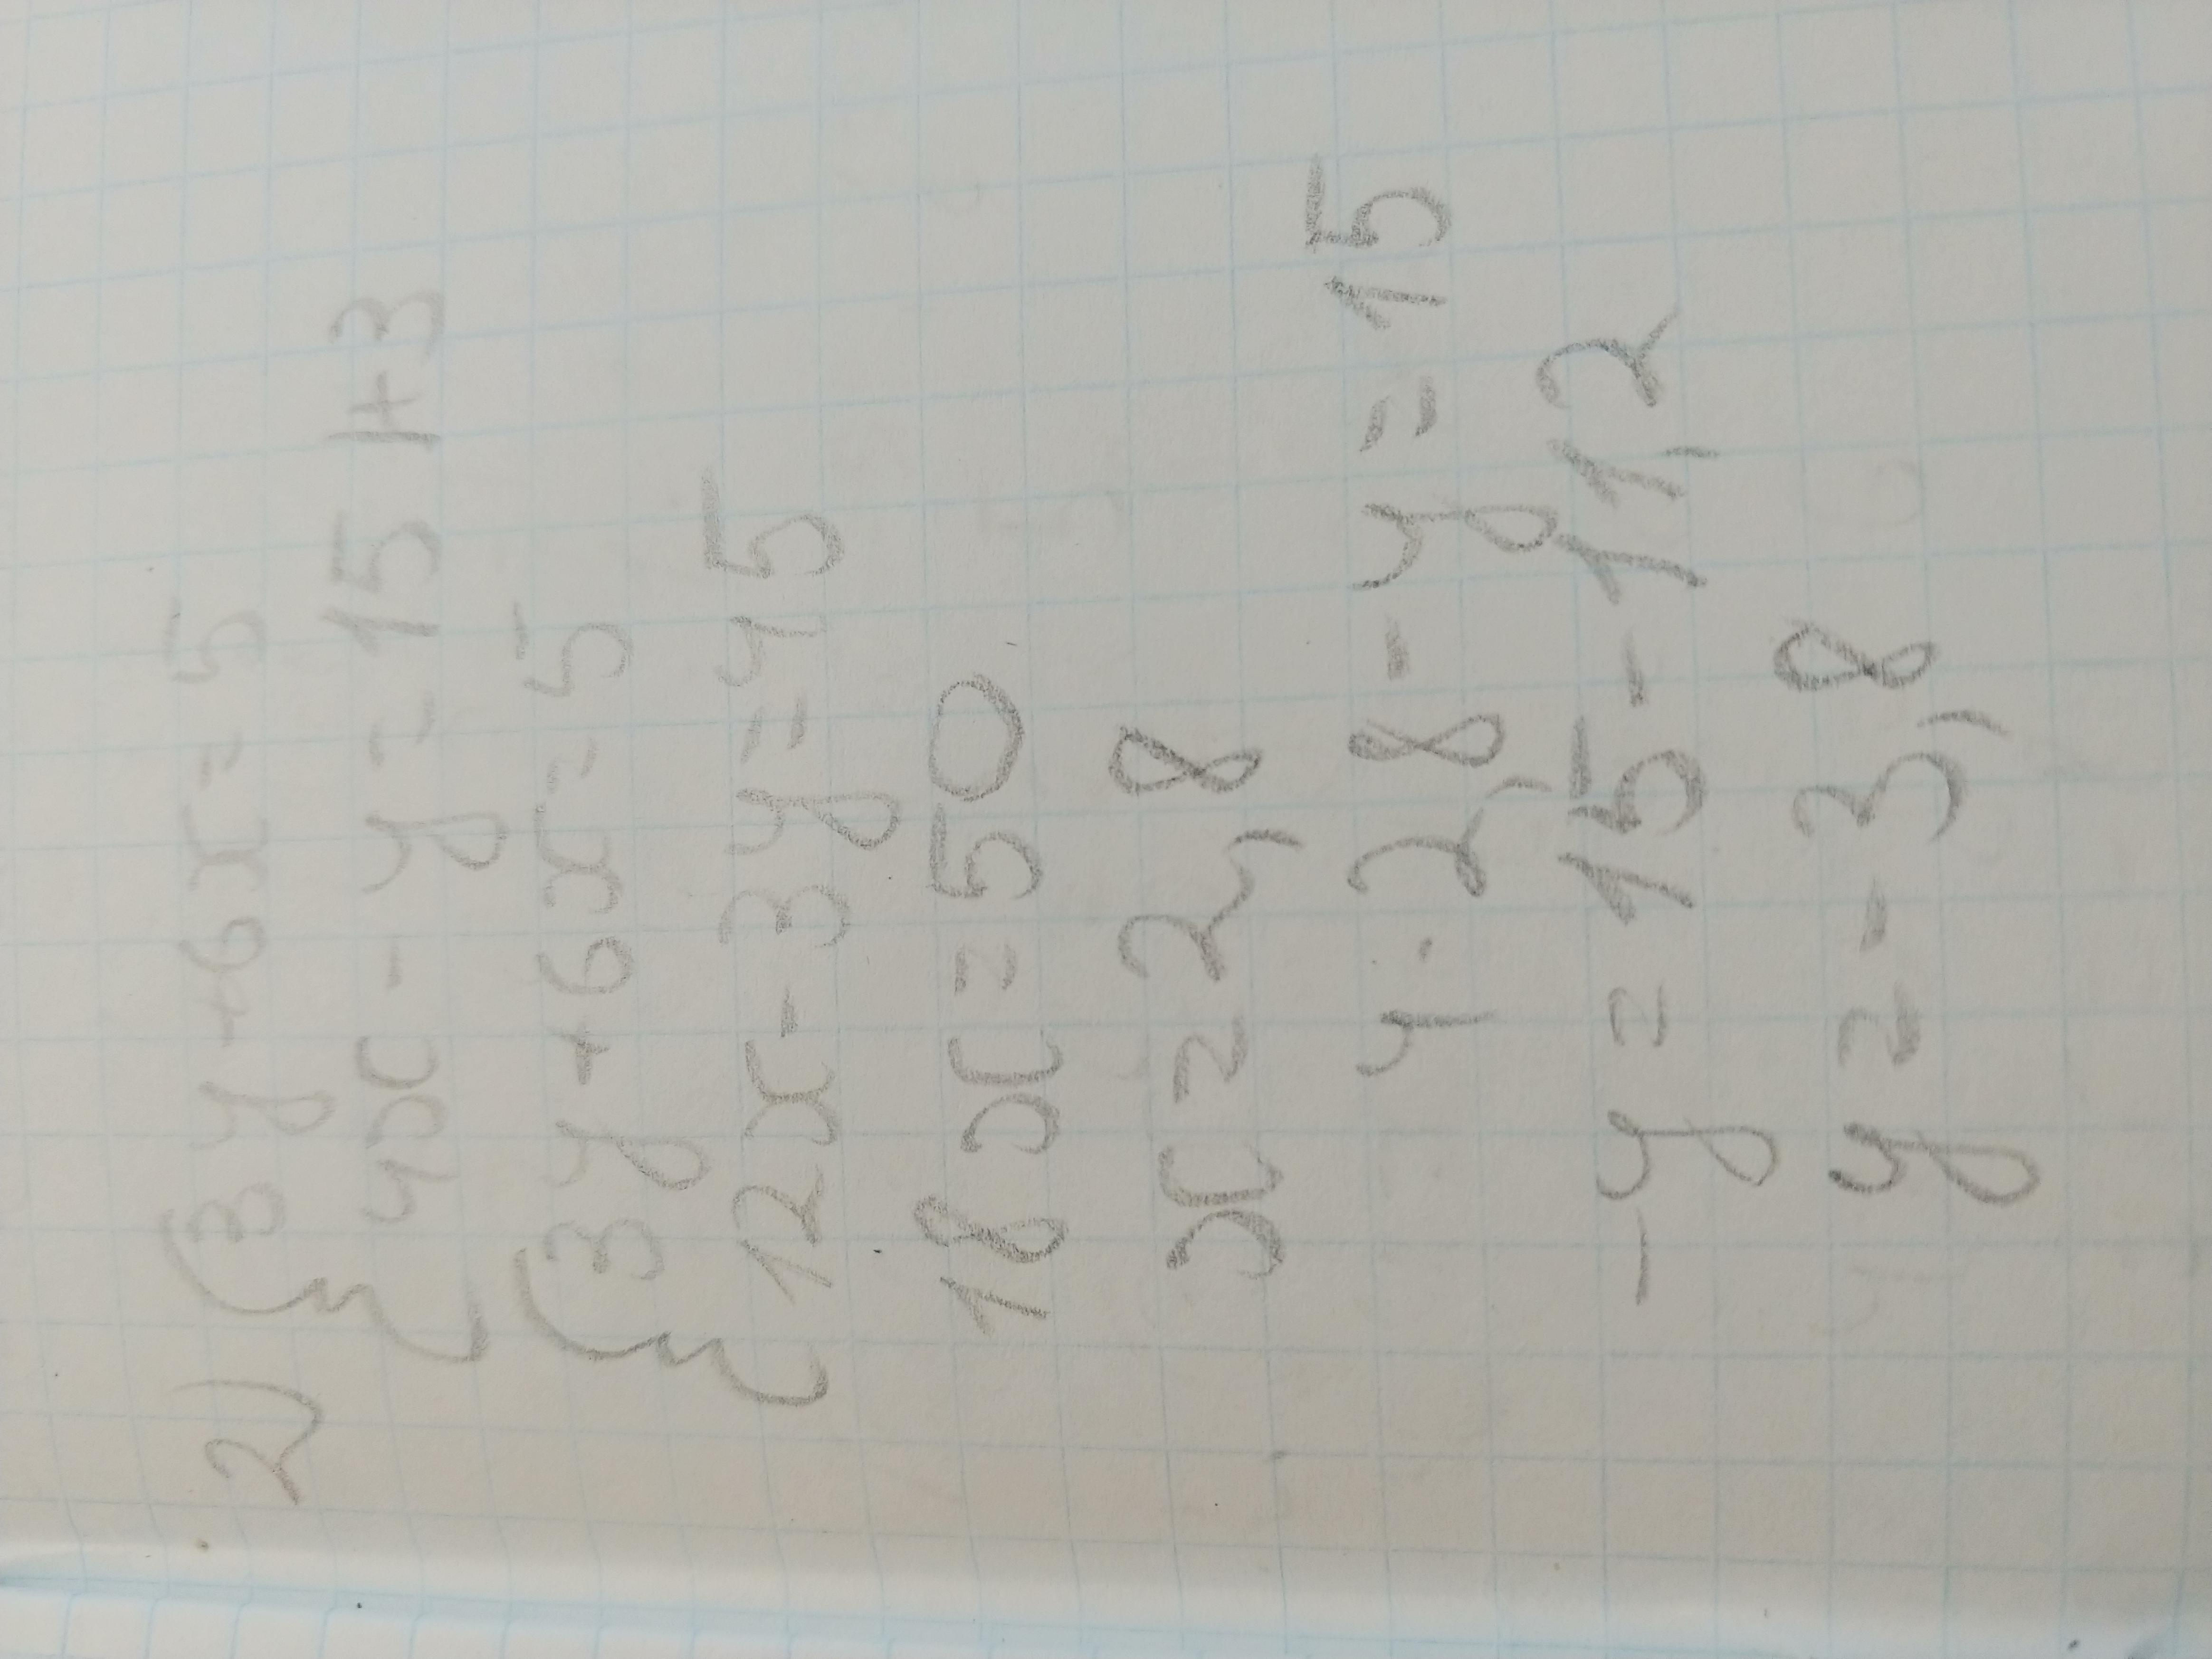 2) { 3y + 6x = 5
4x - y = 15 | + 3
{ 3y + 6x = 5
12x - 3y = 45
18x = 50
x = 2,8
4 · 2,8 - y = 15
-y = 15 - 11,2
y = - 3,8